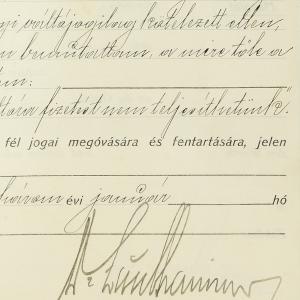 váltójogilag kötelezett ellen,
bemutattam, a mire tőle a
fizetést nem teljesíthetünk"
fél jogai megóvására és fentartására, jelen
három évi január hó
Dr